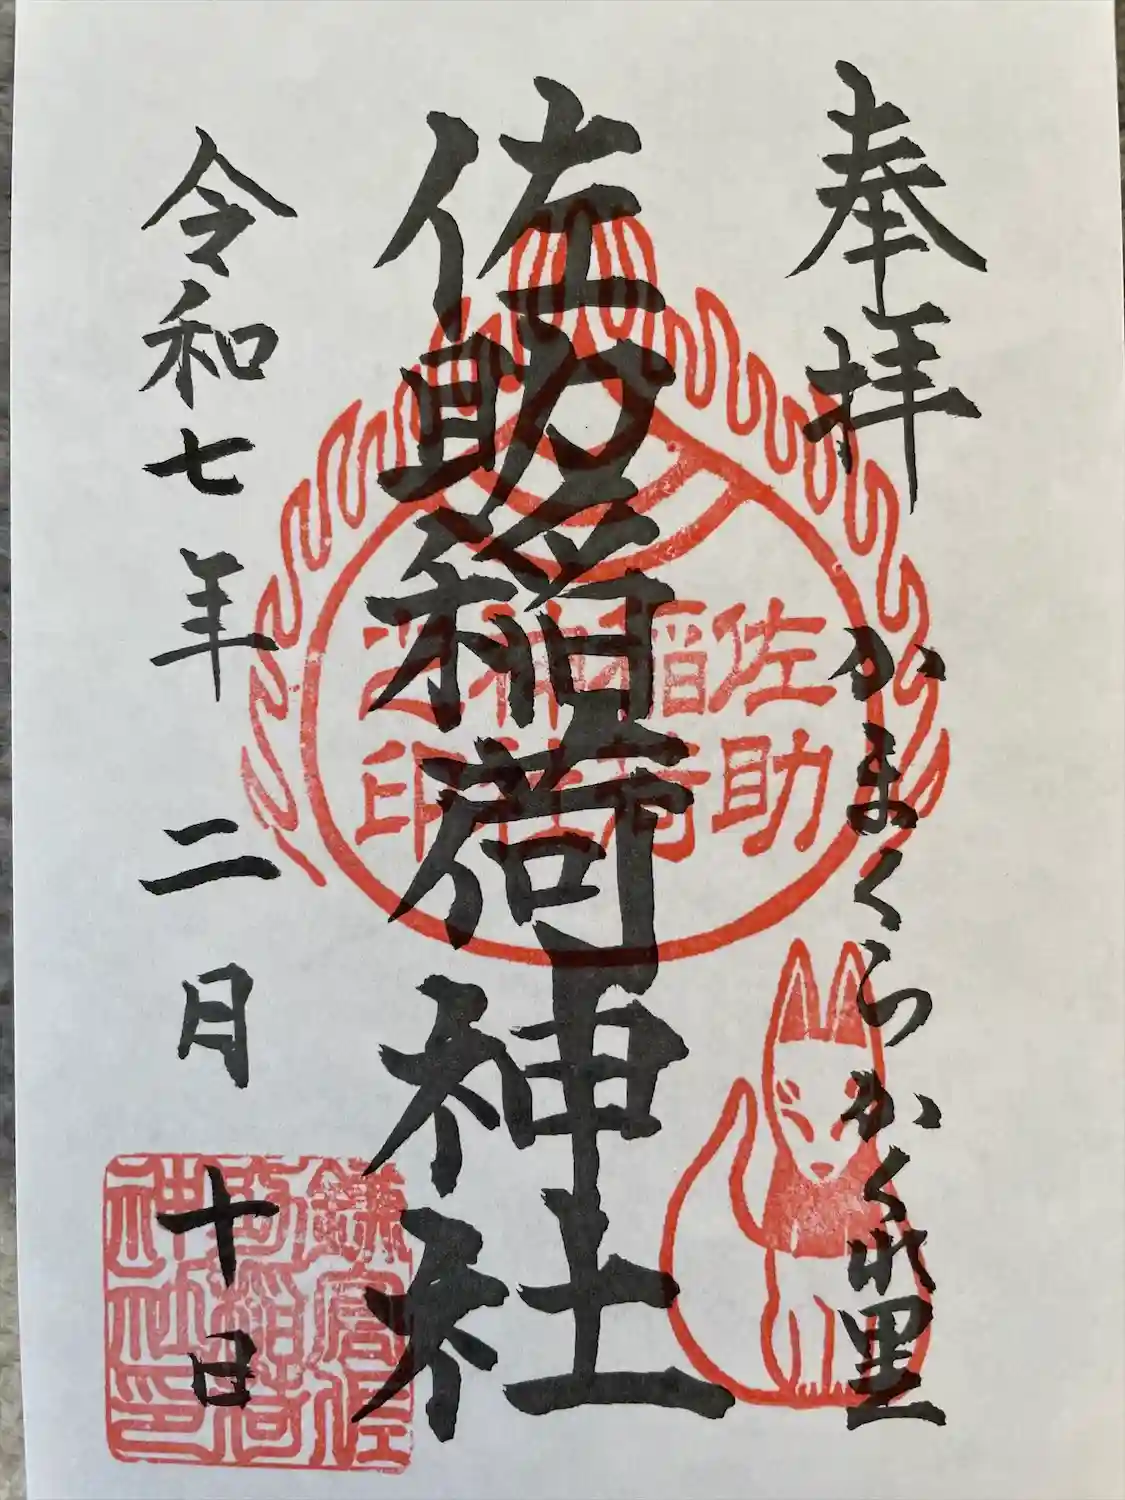 奉拝
かまくらかくれ里
佐助稲荷神社
令和七年二月十日
佐助
稲荷
神社
之印
鎌倉佐
助稲荷
神社印